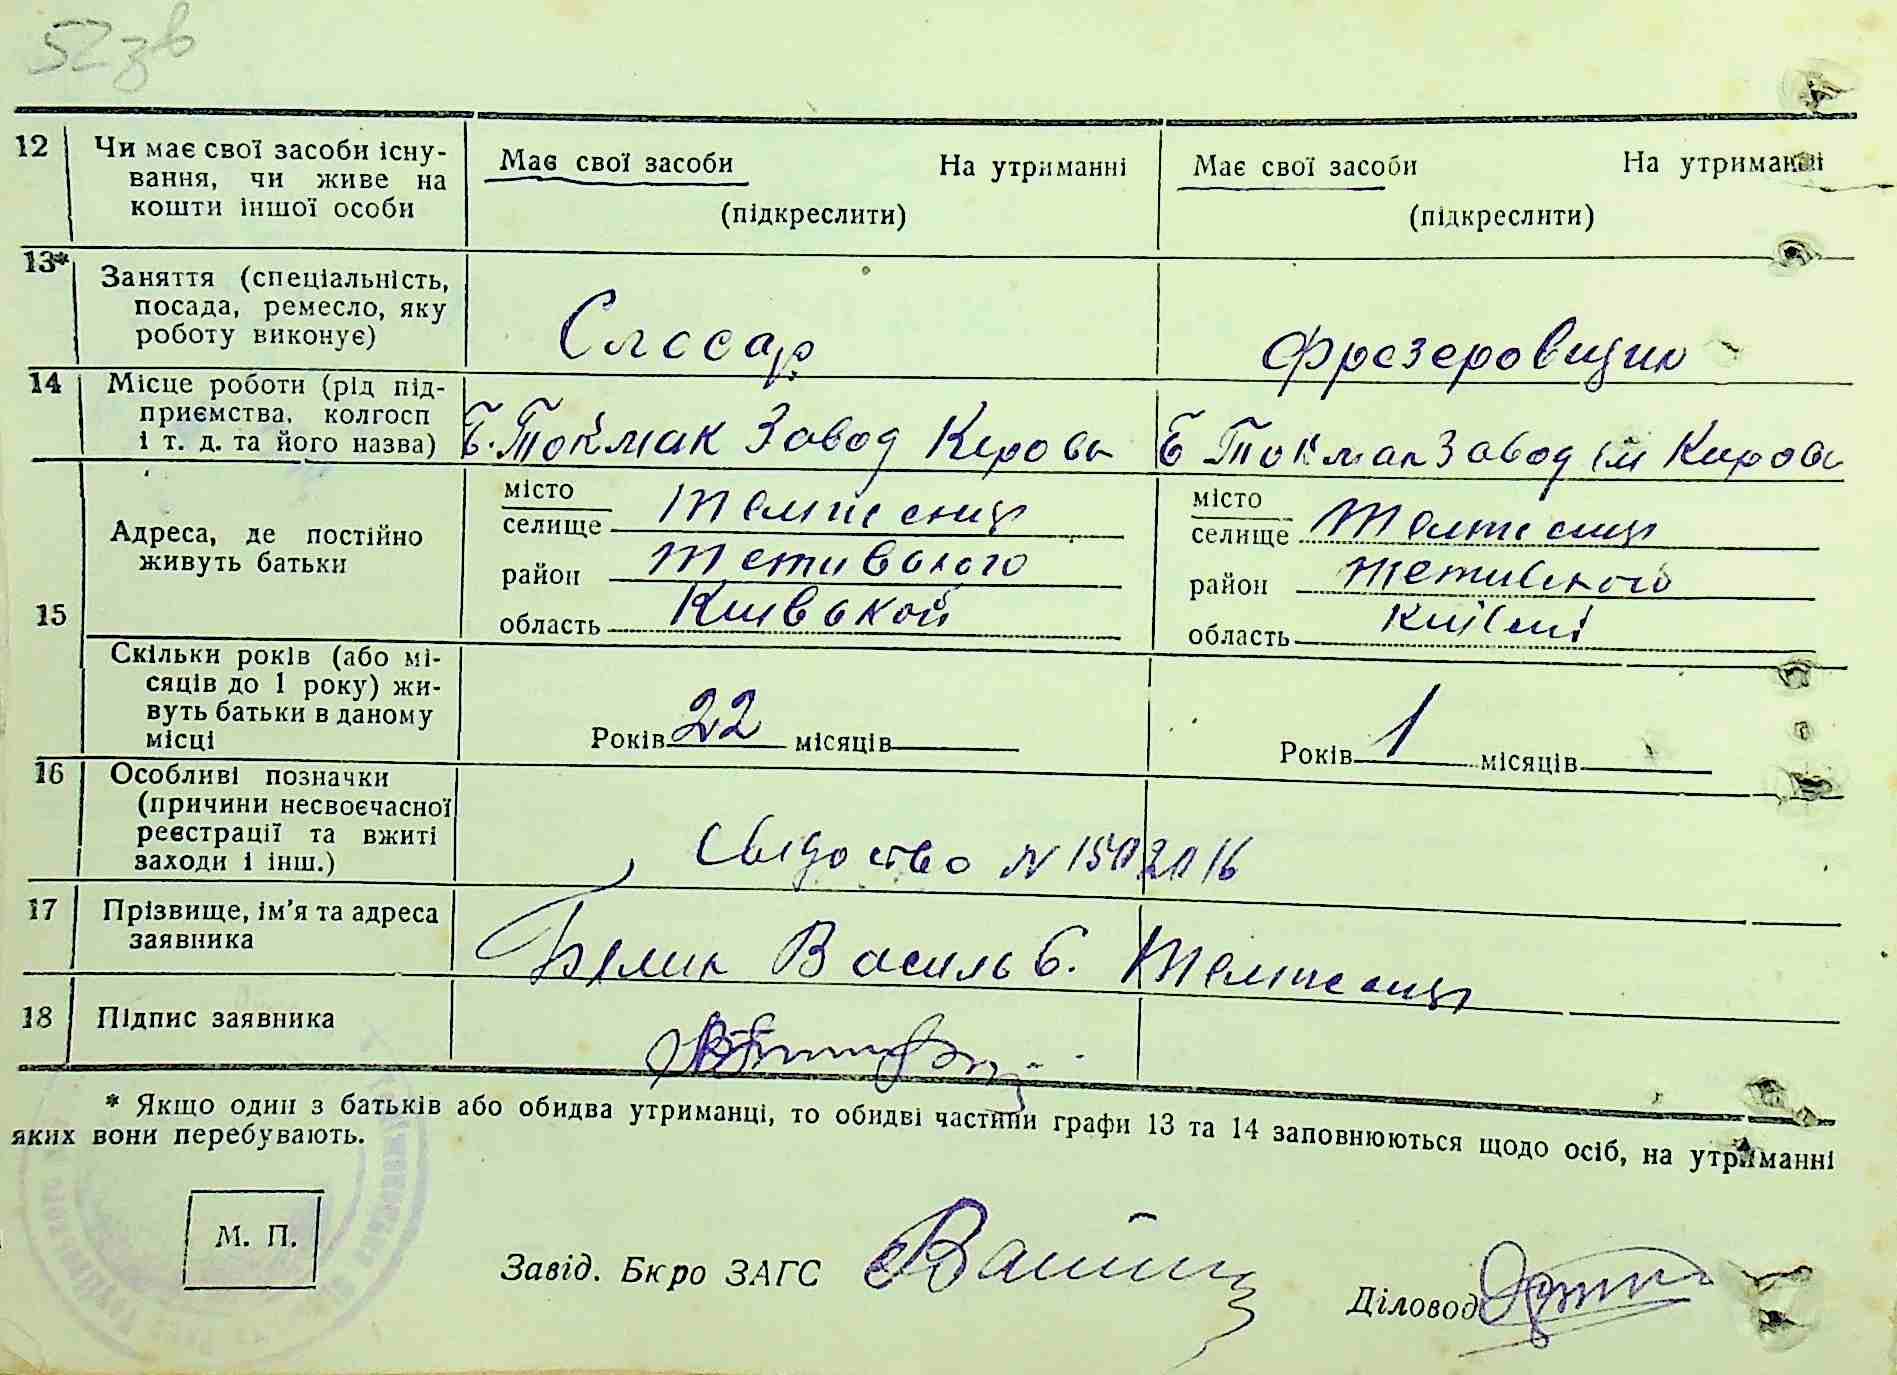 52зв
12 Чи має свої засоби існу-
вання, чи живе на
кошти іншої особи
Має свої засоби На утриманні
(підкреслити)
Має свої засоби На утриманні
(підкреслити)
13* Заняття (спеціальність,
посада, ремесло, яку
роботу виконує)
Слєсар
Фрезеровщик
14 Місце роботи (рід під-
приємства, колгосп
і т. д. та його назва)
Б. Токмак Завод Кірова
Б Токмак Завод ім Кірова
15
Адреса, де постійно
живуть батьки
місто
селище
район
область Київської
місто
селище
район
область
Скільки років (або мі-
сяців до 1 року) жи-
вуть батьки в даному
місці
Років 22 місяців
Років 1 місяців
16 Особливі позначки
(причини несвоєчасної
реєстрації та вжиті
заходи і інш.)
Свідоство N 1502016
17 Прізвище, ім'я та адреса
заявника
Василь
18 Підпис заявника
* Якщо один з батьків або обидва утриманці, то обидві частини графи 13 та 14 заповнюються щодо осіб, на утриманні
яких вони перебувають.
М. П.
Завід. Бюро ЗАГС
Діловод